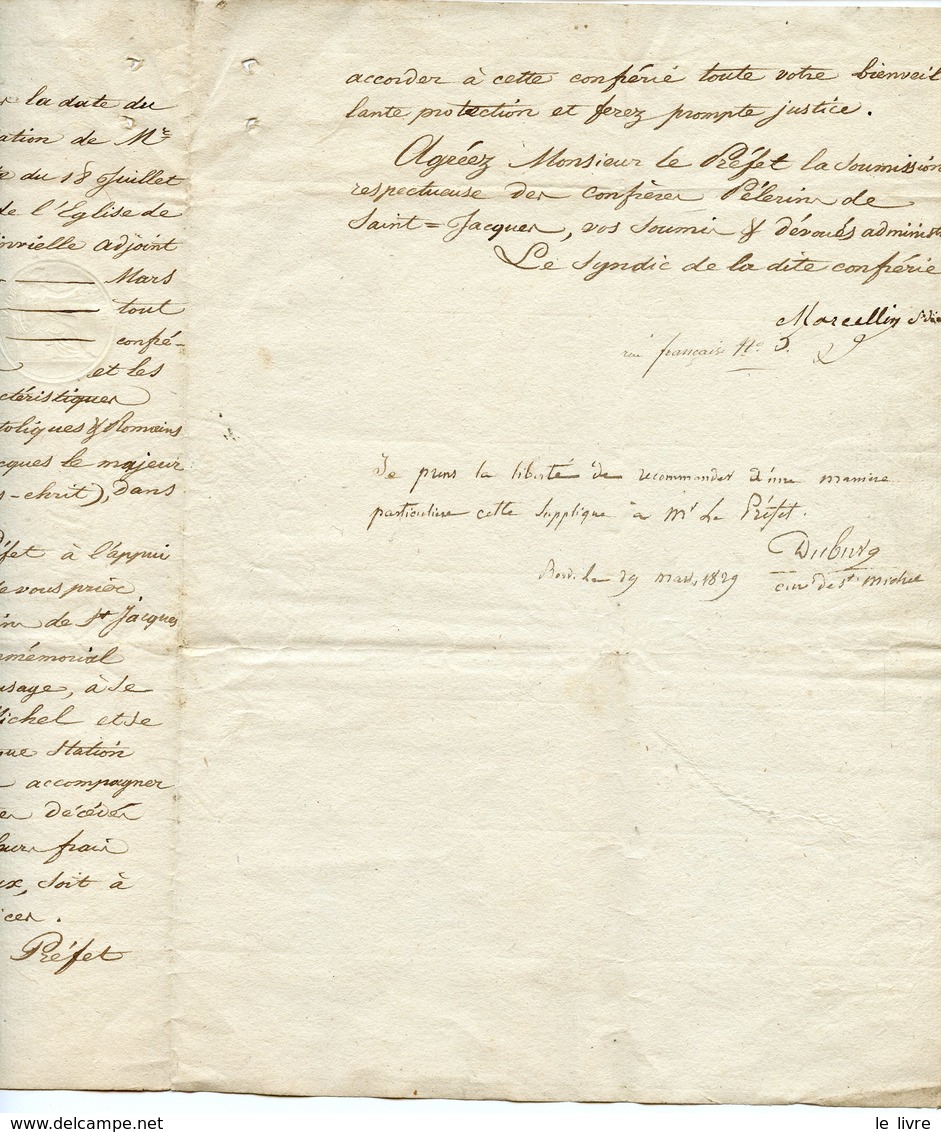 la date du
ation de Mr
du 18 Juillet
de l'Eglise de
adjoint
Mars
tout
confré-
et les
ctéristiques
toliques & Romains
cques le majeur
s-chrit), dans
éfet à l'appui
e vous prier
de St Jacques
mémorial
usage, à se
Michel et se
que Station
accompagner
décédés
leurs frais
ux, soit à
ices.
Préfet
accorder à cette confrérié toute votre bienveil
lante protection et ferez prompte justice.
Agréez Monsieur le Préfet la soumission
respectueuse des confrères Pélerins de
Saint=Jacques, vos soumis & dévoués administ
Le Syndic de la dite confrérie
Marcellin
rue française No 5.
Je prens la liberté de recommander d'une maniere
particuliere cette supplique à Mr Le Préfet.
Duburg
curé de st michel
Bord. le 29 mars 1829
www.delcampe.net
le livre